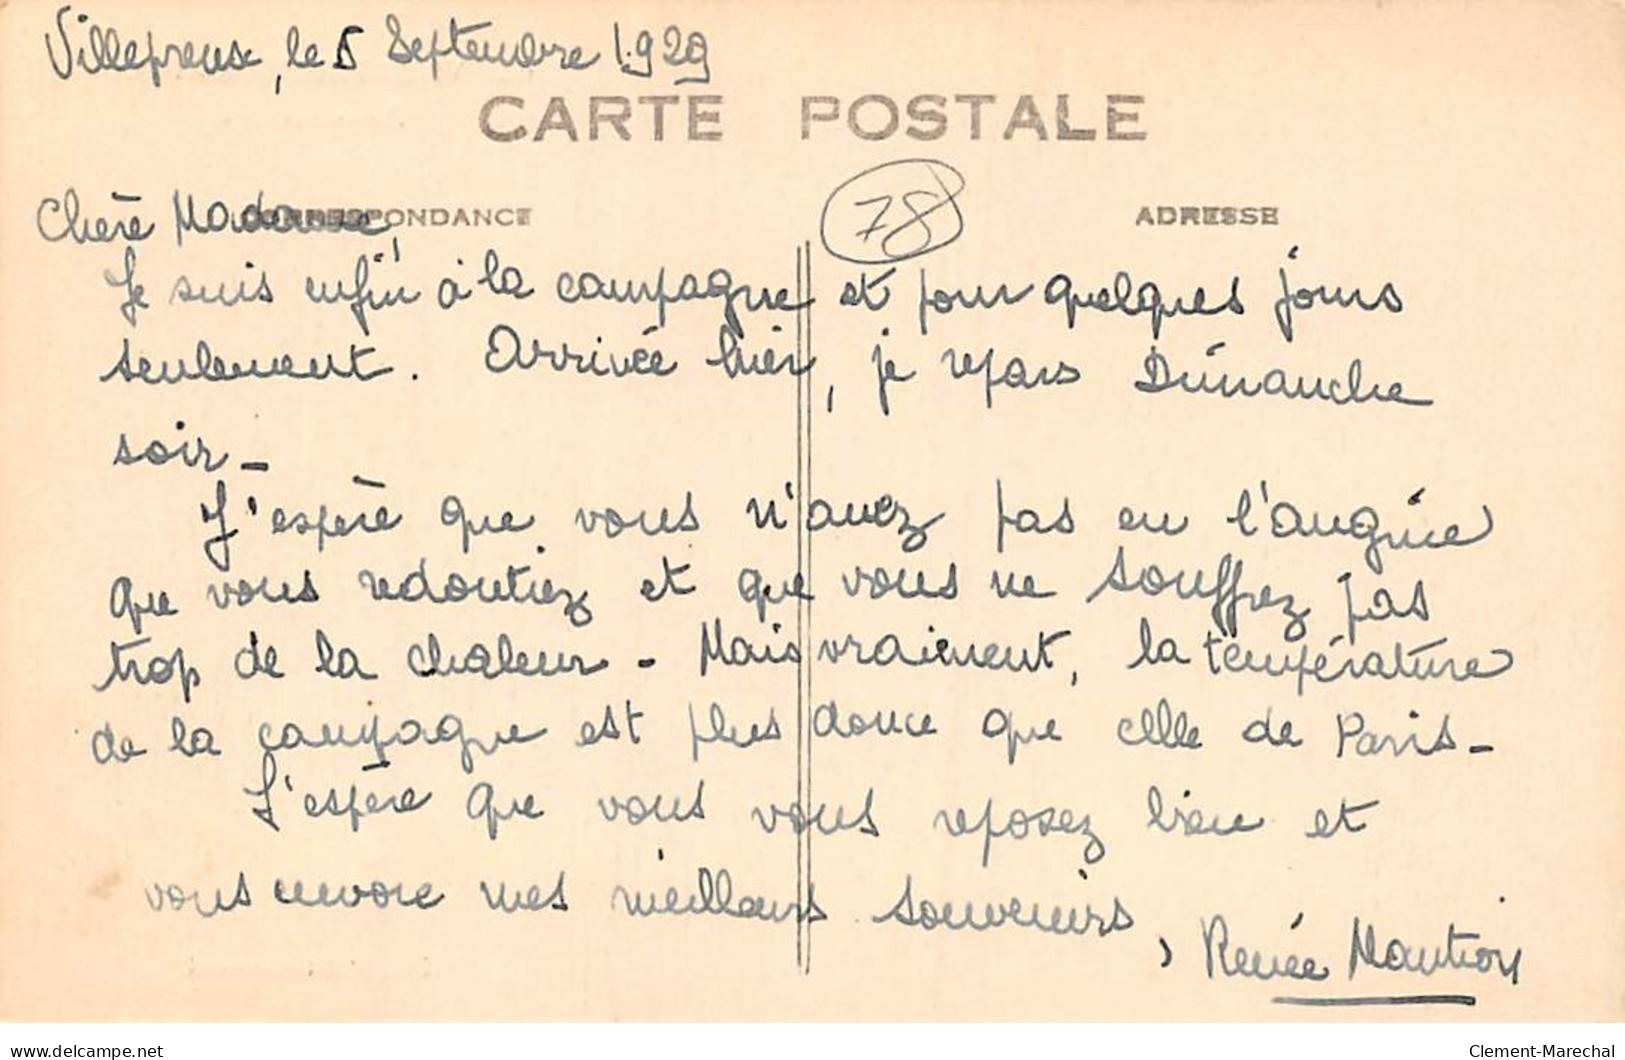 Villepreux, le 5 Septembre 1929
CARTE POSTALE
78
CORRESPONDANCE
ADRESSE
Chère Madame,
Je suis enfin à la campagne et pour quelques jours
seulement. Arrivée hier, je repars Dimanche
soir -
J'espère que vous n'avez pas eu l'angine
que vous redoutiez et que vous ne souffrez pas
trop de la chaleur - Mais vraiment, la température
de la campagne est plus douce que celle de Paris -
J'espère que vous vous reposez bien et
vous envoie mes meilleurs souvenirs,
Renée
delcampe.net
Clement-Marechal